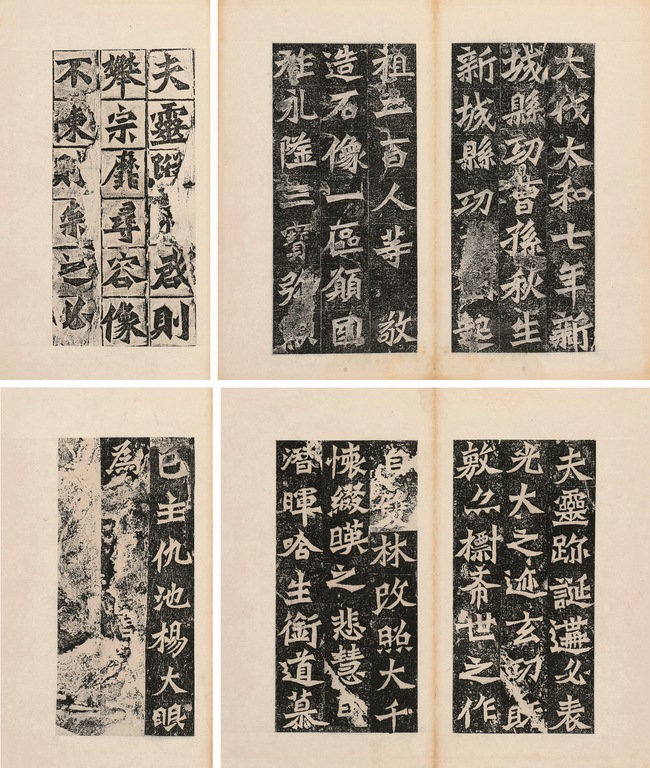 夫靈啓則
攀宗靡尋容像
不陳則崇之必
大代大和七年新
城縣功曹孫秋生
新城縣功起
祖二百人等敬
造石像一區願國
祚永隆三寶弥
夫靈跡誕遘必表
光大之迹玄功既
敷亦標希世之作
自雙林改照大千
懷綴暎之悲慧日
潛暉唅生銜道慕
巳主仇池楊大眼
為